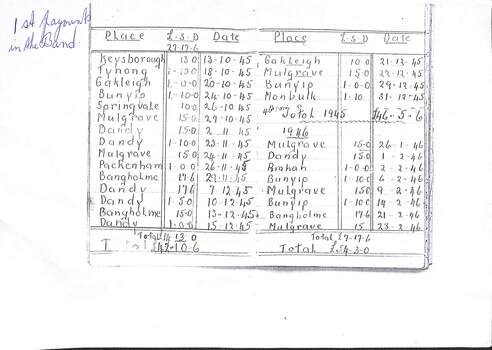 1st payment
in the Band.
Place £-S-D Date
27-17-6
Keysborough 13 0 13-10-45
Tynong 18-10-45
Oakleigh 1-0-0 20-10-45
Bunyip 1-10-0 24-10-45
Springvale 26-10-45
Mulgrave 15-0 27-10-45
Dandy 15-0 2-11-45
Dandy 1-10-0 23-11-45
Mulgrave 15-0 24-11-45
Packenham 1-0-0 26-11-45
Bangholme 17-6 -11-45
Dandy 17-6 7-12-45
Dandy 1-5-0 10-12-45
Bangholme 15-0 13-12-45
Dandy 1-0-0 15-12-45
Total 14 13 0
£42-10-6
Place £-S-D Date
Oakleigh 10-0 21-12-45
Mulgrave 15-0 22-12-45
Bunyip 1-0-0 29-12-45
Monbulk 1-10 31-12-45
Total 1945 £46-5-6
1946
Mulgrave 15-0 26-1-46
Dandy 15-0 1-2-46
Prahan 1-0-0 2-2-46
Bunyip 1-10-0 6-2-46
Mulgrave 15-0 9-2-46
Bunyip 1-10-0 14-2-46
Bangholme 17-6 21-2-46
Mulgrave 15 23-2-46
Total £7-17-6
Total £54-3-0